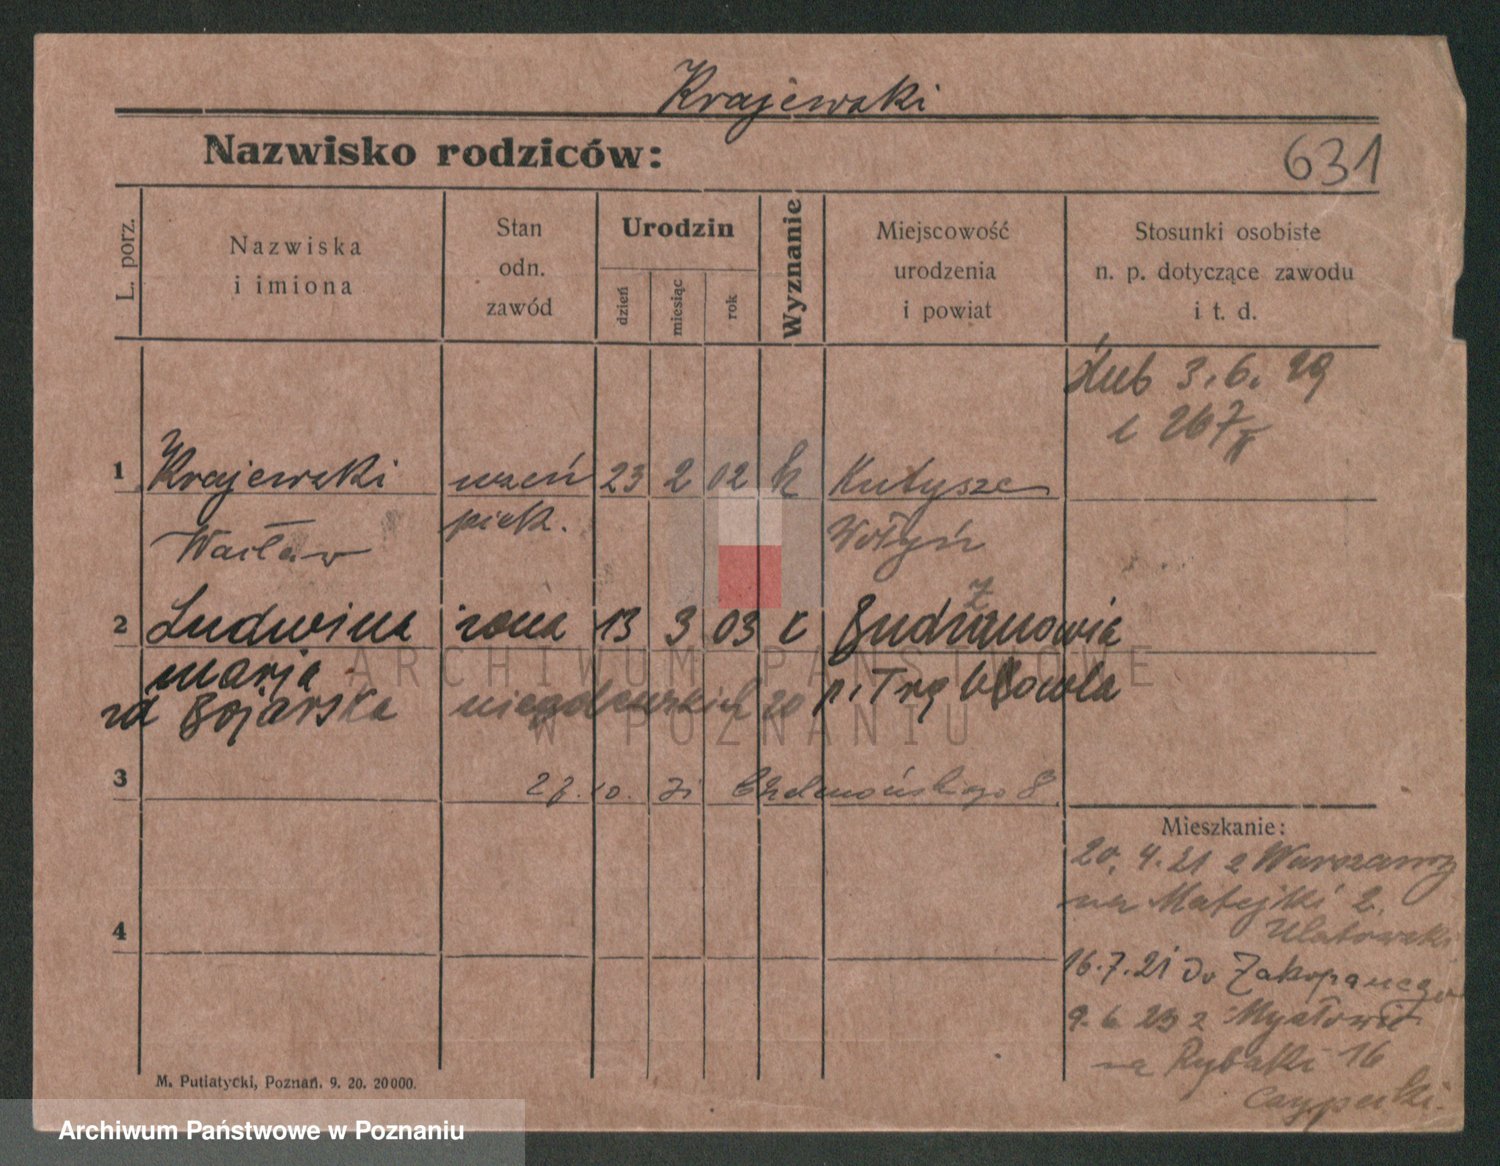 Krajewski
Nazwisko rodziców:
631
L. porz.
Nazwiska
i imiona
Stan
odn.
zawód
Urodzin
dzień
miesiąc
rok
Wyznanie
Miejscowość
urodzenia
i powiat
Stosunki osobiste
n. p. dotyczące zawodu
i t. d.
ślub 3.6.29
267
1 Krajewski uczeń 23 2 02 k
Wacław piek. Wołyń
2 Ludwina żona 13 3 03 k Budzanowia
marja
zd Bojarska 20 p. Trębowla
ARCHIWUM PAŃSTWOWE
W POZNANIU
3 10. 31 Chełmońskiego 8.
Mieszkanie:
20.4.21 z Warszawy
na Matejki 2.
Ulatowski
4
16.7.21 do Zakopanego
9.6.23 z
na Rybaki 16
M. Putiatycki, Poznań. 9. 20. 20000.
Archiwum Państwowe w Poznaniu